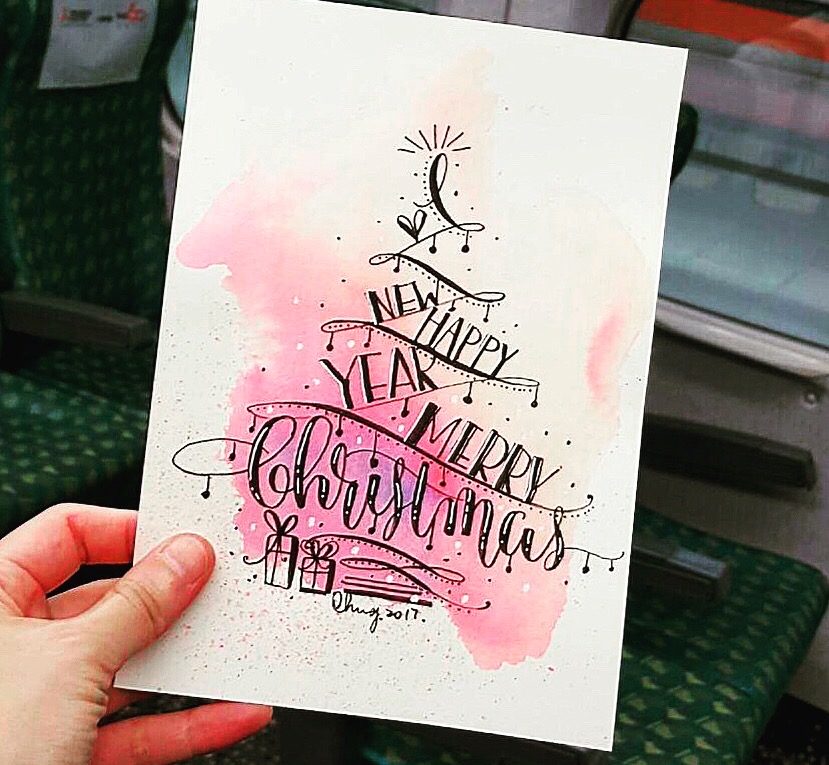 NEW
HAPPY
YEAR
MERRY
Christmas
2017.